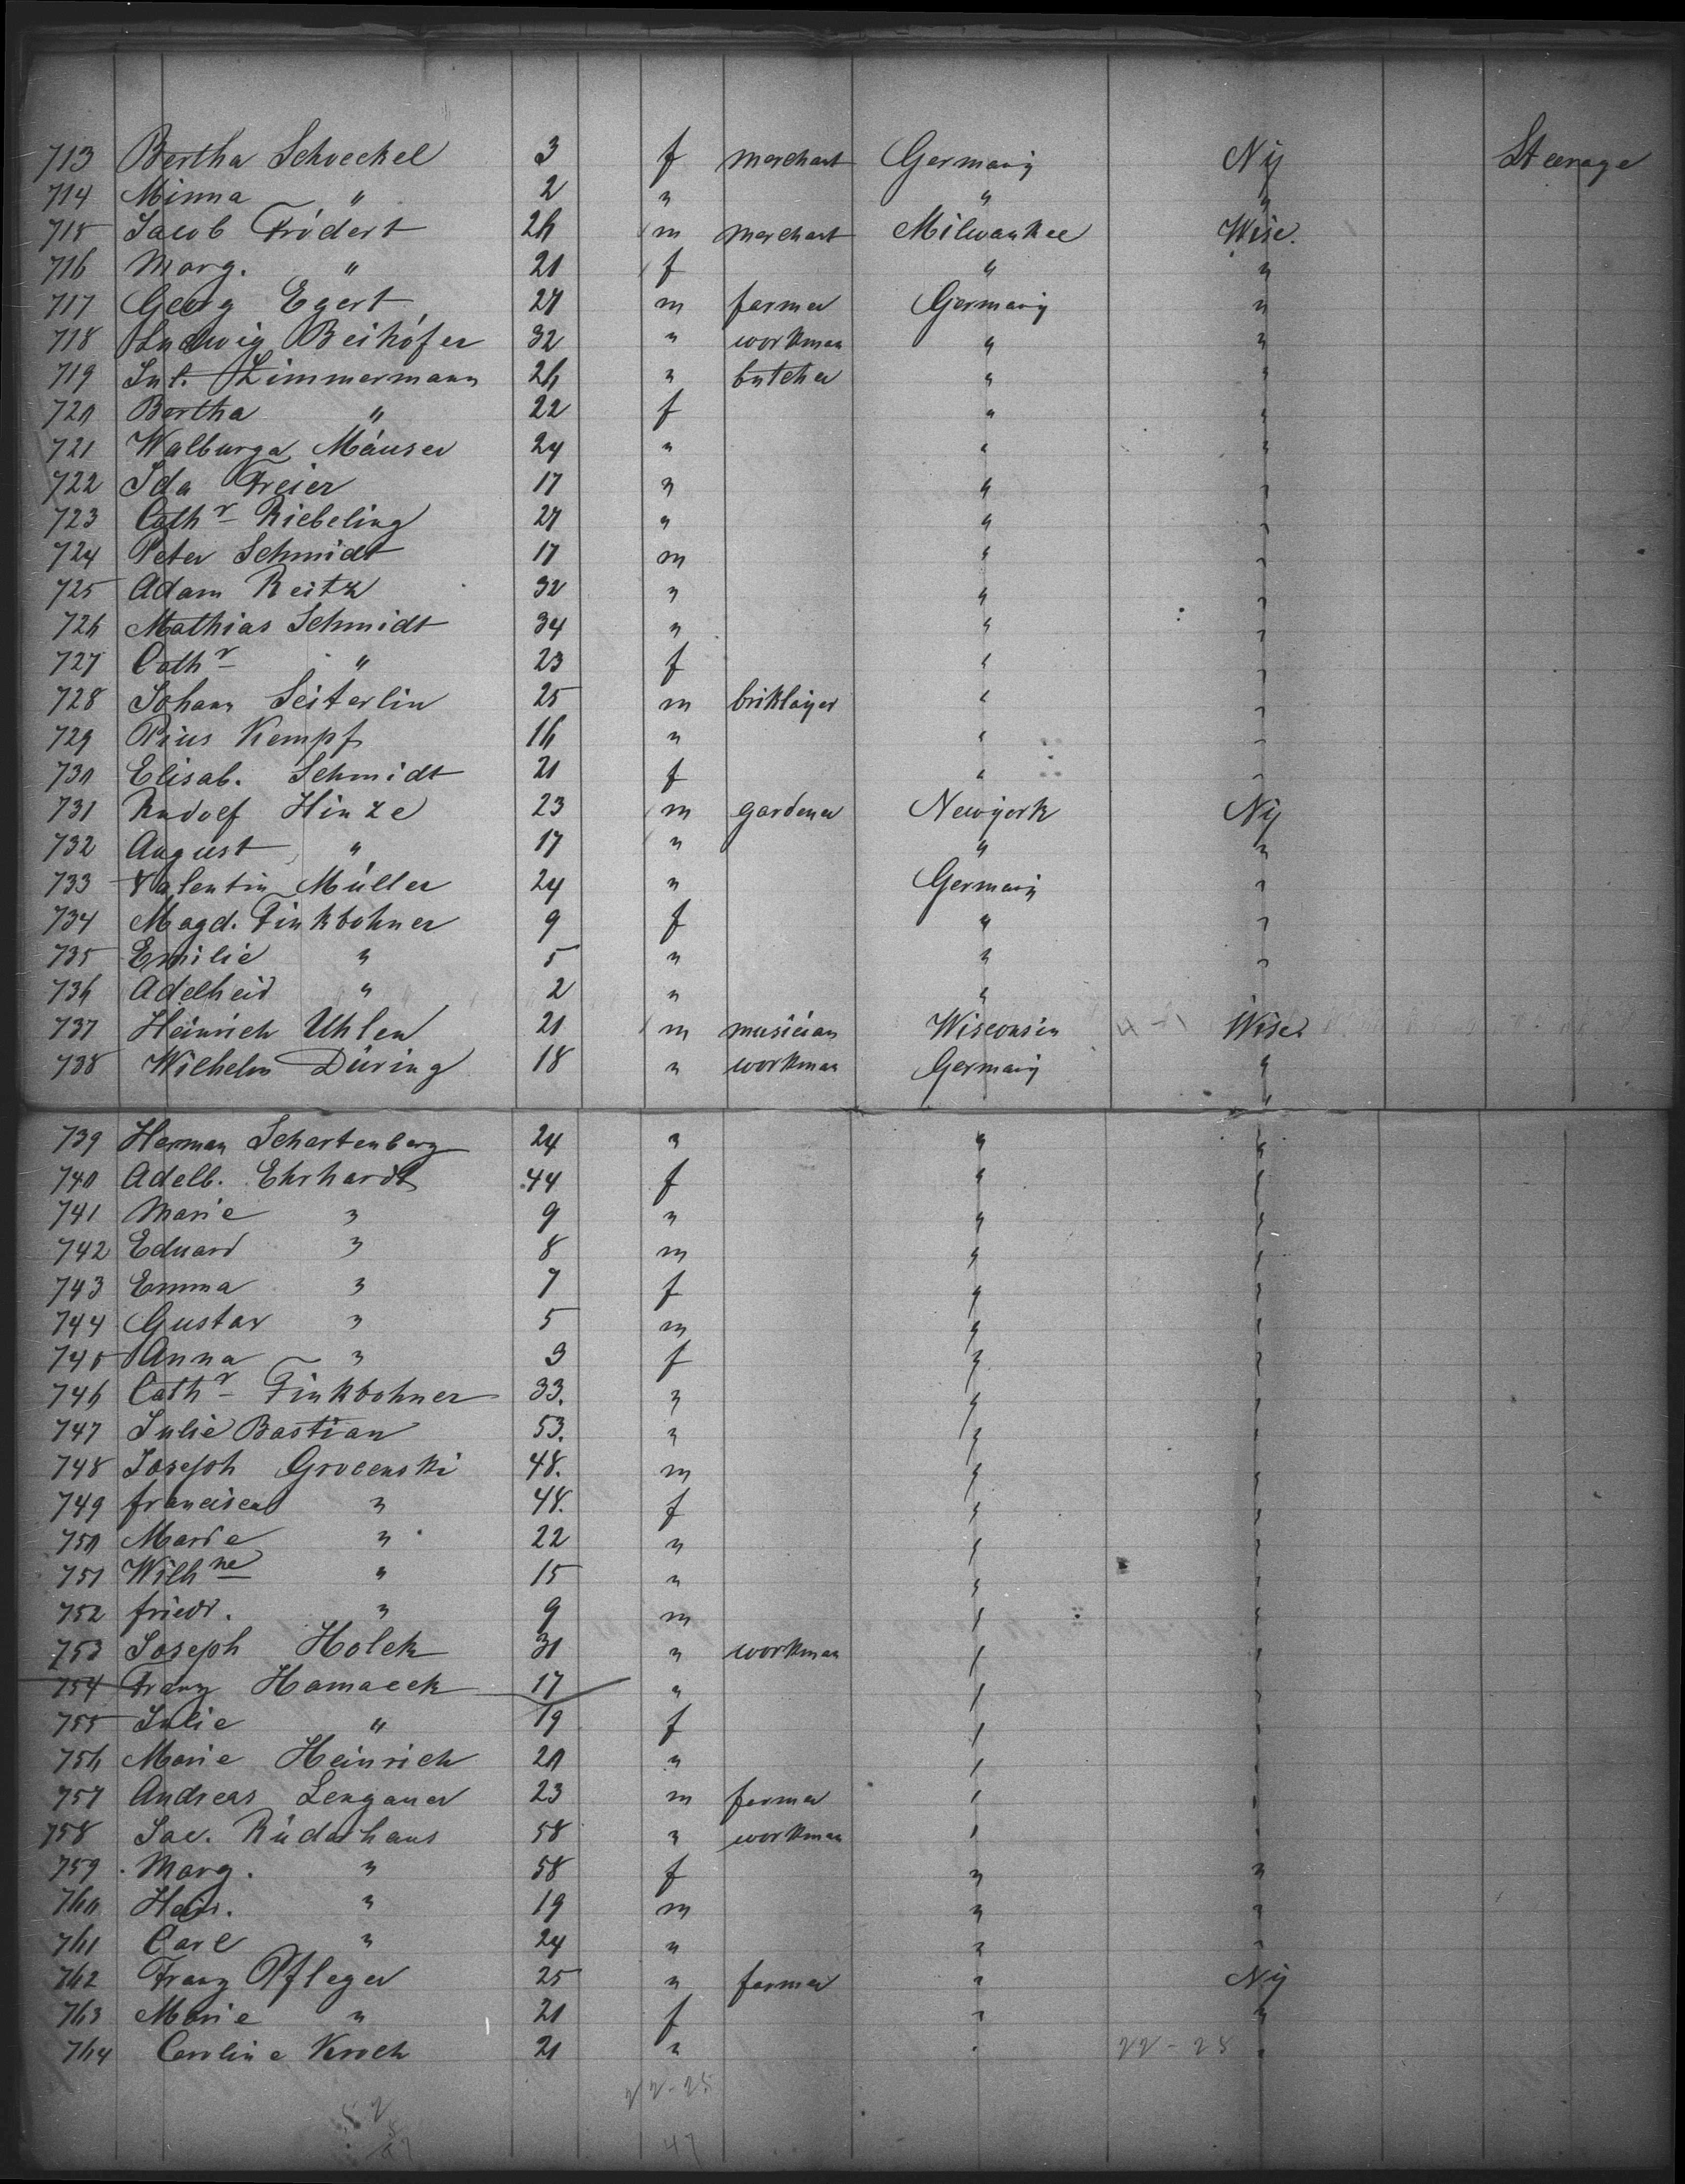 713 Bertha Schoeckel 3 f merchant Germany Ny Steerage
714 Minna " 2 " " "
715 Jacob Frödert 26 m merchant Milwaukee Wisc.
716 Marg. " 21 f " "
717 Georg Egert 27 m farmer Germany "
718 Ludwig Beihöfer 32 " workman " "
719 Jul. Zimmermann 26 " butcher " "
720 Bertha " 22 f " "
721 Walburga Mäuser 24 " " "
722 Ida Freier 17 " " "
723 Cathr Riebeling 27 " " "
724 Peter Schmidt 17 m " "
725 Adam Reitz 32 " " "
726 Mathias Schmidt 34 " " "
727 Cathr " 23 f " "
728 Johann Seiterlin 25 m briklayer " "
729 Pius Kempf 16 " " "
730 Elisab. Schmidt 21 f " "
731 Rudolf Hinze 23 m gardener Newyork Ny
732 August " 17 " " "
733 Valentin Müller 24 " Germany "
734 Magd. Finkbohner 9 f " "
735 Emilie " 5 " " "
736 Adelheid " 2 " " "
737 Heinrich Uhlen 21 m musician Wisconsin Wisc
738 Wilhelm Düring 18 " workman Germany "
739 Herman Schartenberg 24 " " "
740 Adelb. Ehrhardt 44 f " "
741 Marie " 9 " " "
742 Eduard " 8 m " "
743 Emma " 7 f " "
744 Gustav " 5 m " "
745 Anna " 3 f " "
746 Cathr Finkbohner 33. " " "
747 Julie Bastian 53. " " "
748 Joseph Grocenski 48. m " "
749 francisca " 48. f " "
750 Marie " 22 " " "
751 Wilhne " 15 " " "
752 friedr. " 9 m " "
753 Joseph Holek 31 " workman " "
754 Franz Hamacek 17 " " "
755 Julie " 19 f " "
756 Marie Heinrich 20 " " "
757 Andreas Lengauer 23 m farmer " "
758 Jac. Rüdashaus 58 " workman " "
759 Marg. " 58 f " "
760 Heinr. " 19 m " "
761 Carl " 24 " " "
762 Franz Pfleger 25 " farmer " Ny
763 Marie " 21 f " "
764 Caroline Kroch 21 " " 22-25 "
22-25
52
47